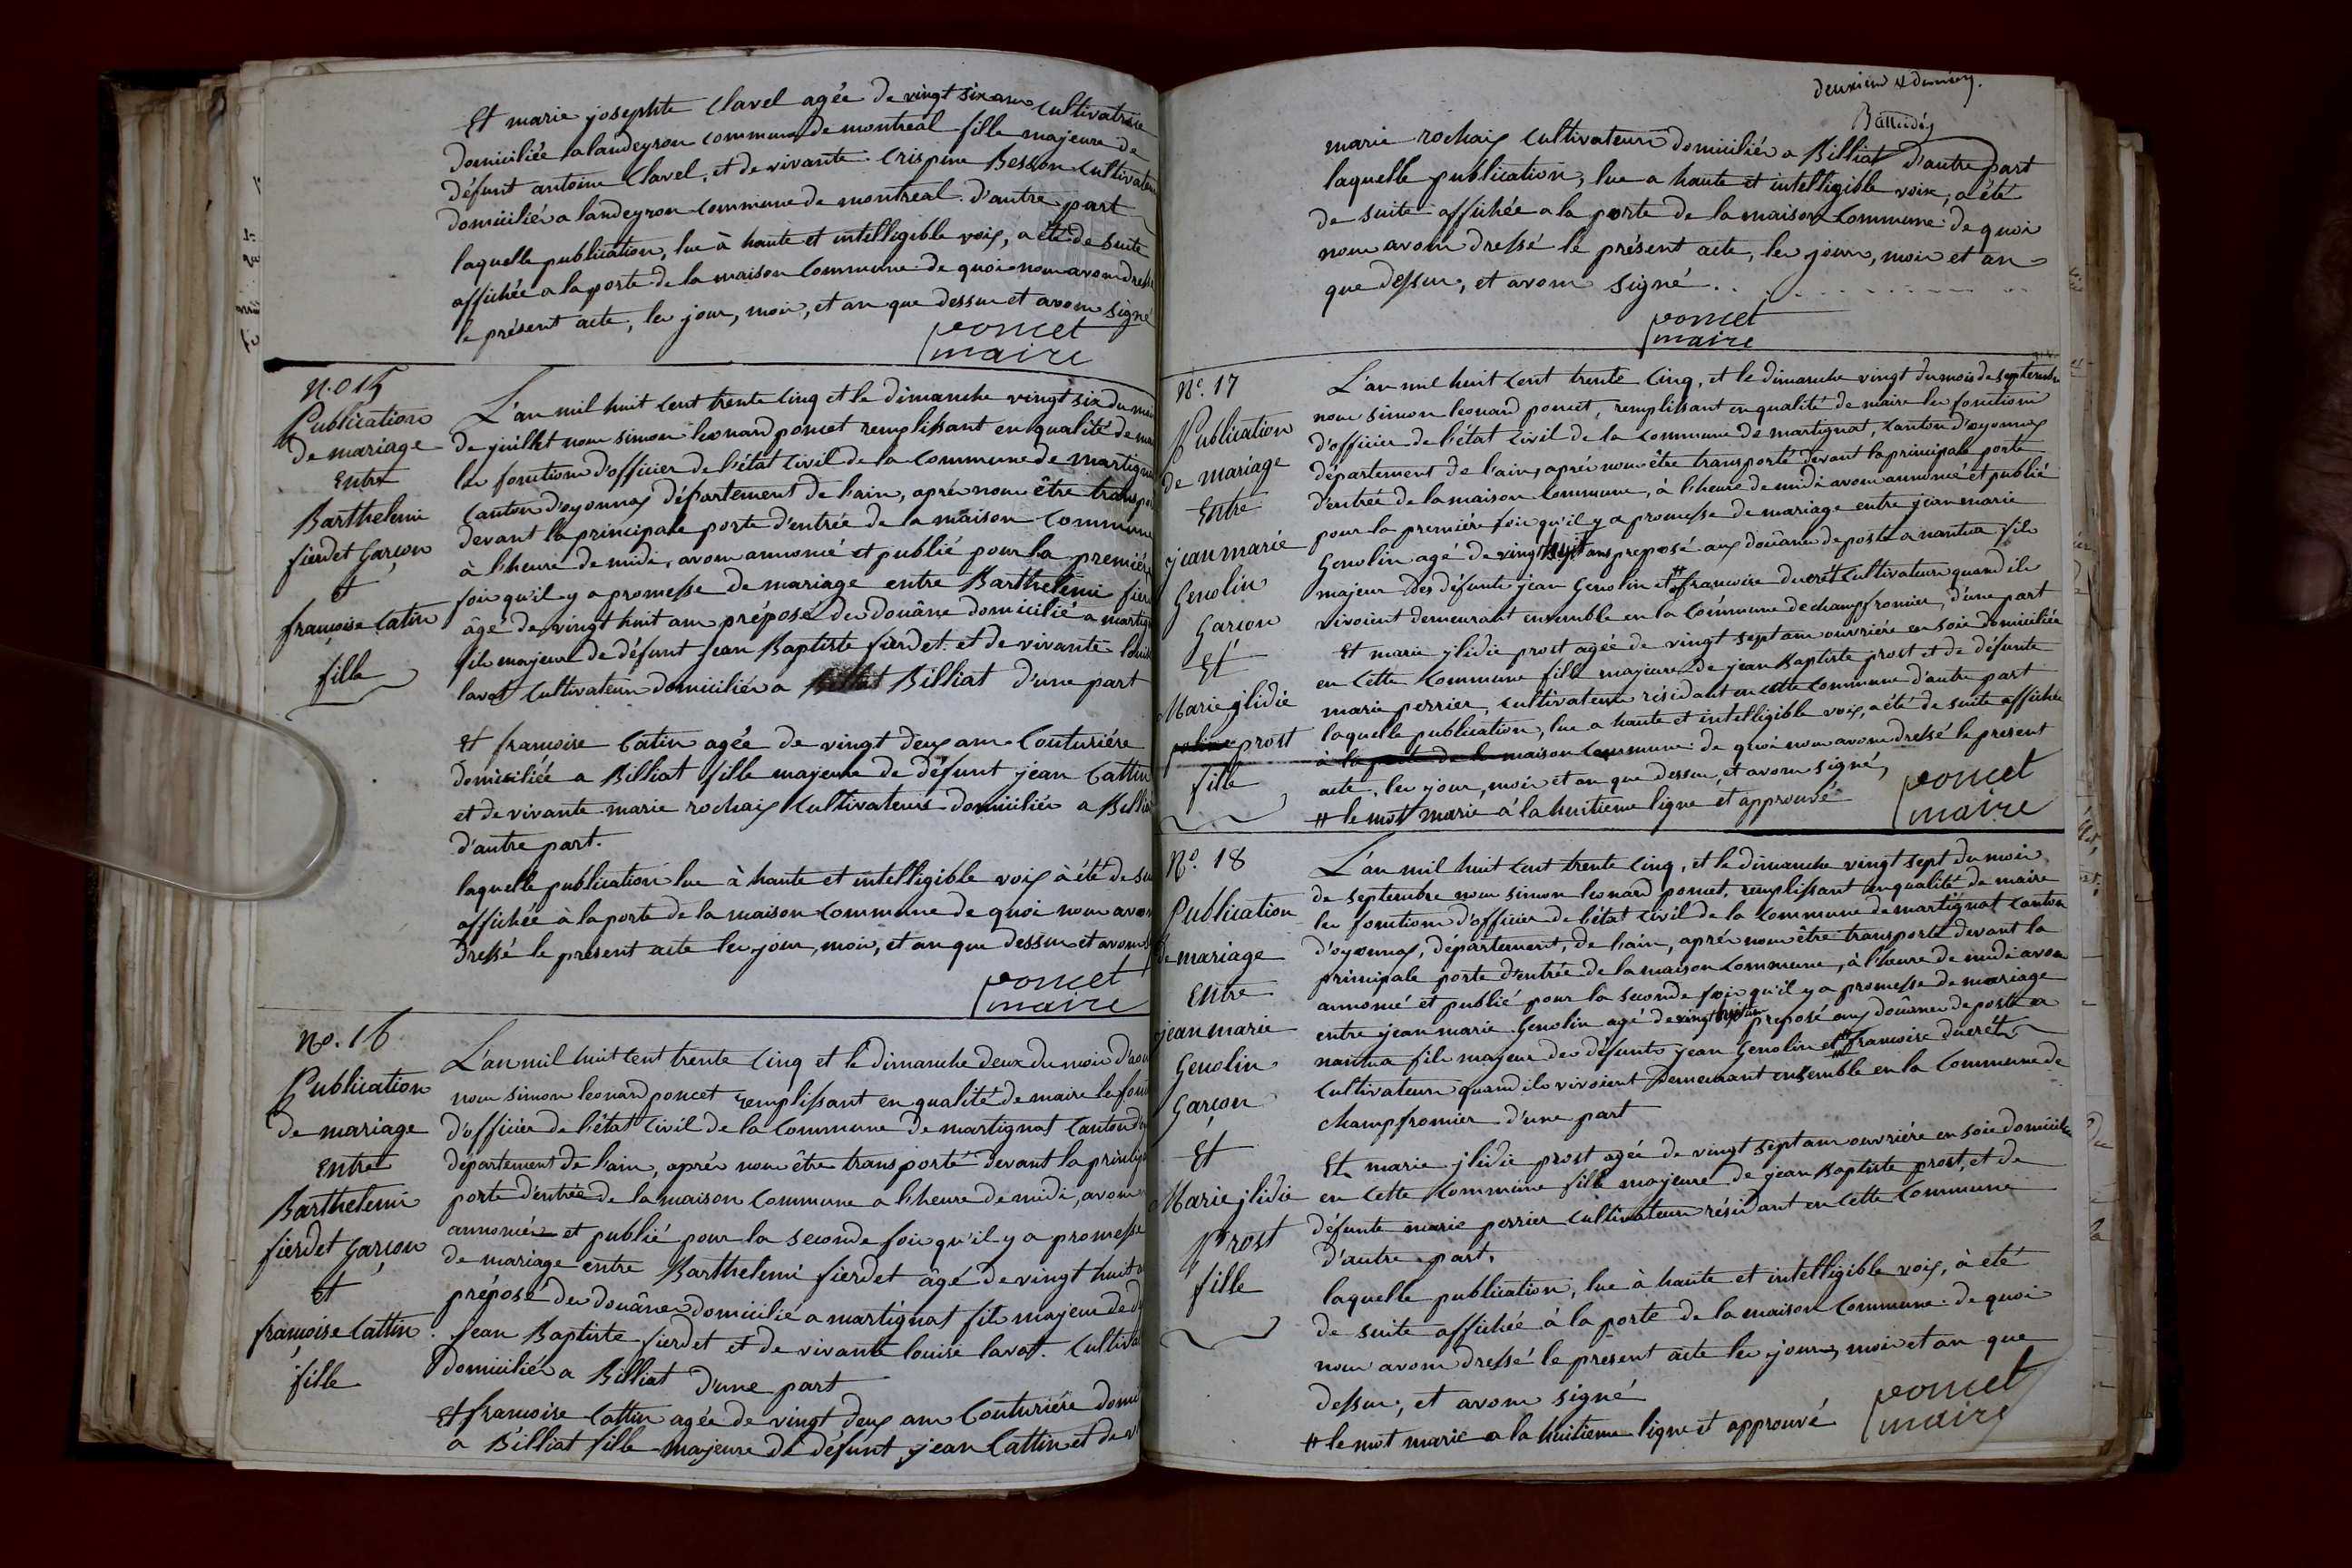 Et marie josephte Clavel agée de vingt six ans cultivatrice
domiciliée a landeyron commune de montreal fille majeure de
défunt antoine Clavel, et de vivante Crispine Besson cultivateurs
domiciliés a landeyron commune de montreal d'autre part
laquelle publication, lue à haute et intelligible voix, a été de suite
affichée a la porte de la maison commune de quoi nous avons dressé
le présent acte, les jour, mois, et an que dessus et avons signé
poncet
maire
N.o 15
Publication
de mariage
Entre
Barthelemi
fierdet Garçon
et
françoise Catin
fille
L'an mil huit cent trente cinq et le dimanche vingt six du mois
de juillet nous simon leonard poncet remplissant en qualité de maire
les fonctions d'officier de l'état civil de la commune de martignat
canton d'oyonnax département de l'ain, aprés nous être transporté
devant la principale porte d'entrée de la maison commune
à l'heure de midi, avons annoncé et publié pour la premiére
fois qu'il y a promesse de mariage entre Barthelemi fierdet
âgé de vingt huit ans préposé des douâne domicilié a martignat
fils majeur de défunt jean Baptiste fierdet et de vivante louise
lavat cultivateurs domiciliés a Billiat d'une part
Et francoise Catin agée de vingt deux ans Couturiére
domiciliée a Billiat fille majeure de défunt jean Cattin
et de vivante marie rochaix cultivateurs domiciliés a Billiat
d'autre part.
laquelle publication lue à haute et intelligible voix à été de suite
affichée à la porte de la maison commune de quoi nous avons
dressé le présent acte les jour, mois, et an que dessus et avons
poncet
maire
No. 16
Publication
de mariage
Entre
Barthelemi
fierdet Garçon
et
françoise Cattin
fille
L'an mil huit cent trente cinq et le dimanche deux du mois d'aout
nous simon leonard poncet remplissant en qualité de maire les fonctions
d'officier de l'état civil de la commune de martignat canton
département de l'ain, aprés nous être transporté devant la principale
porte d'entrée de la maison commune a l'heure de midi, avons
annoncé et publié pour la seconde fois qu'il y a promesse
de mariage entre Barthelemi fierdet âgé de vingt huit
préposé des douânes domicilié a martignat fils majeur de
jean Baptiste fierdet et de vivante louise lavat. Cultiva
domiciliés a Billiat d'une part
Et francoise Cattin agée de vingt deux ans Couturiére domi
a Billiat fille majeure de défunt jean Cattin et de vi
deuxieme & dernier
marie rochaix cultivateurs domiciliés a Billiat d'autre part
laquelle publication, lue a haute et intelligible voix, a été
de suite affichée a la porte de la maison commune de quoi
nous avons dressé le présent acte, les jour, mois et an
que dessus, et avons signé
poncet
maire
No. 17
Publication
de mariage
Entre
jean marie
Genolin
Garçon
Et
Marie jlidie
prost
fille
L'an mil huit cent trente cinq, et le dimanche vingt du mois de septembre
nous simon leonard poncet, remplissant en qualité de maire les fonctions
d'officier de l'état civil de la commune de martignat, canton d'oyonnax
département de l'ain, aprés nous être transporté devant la principale porte
d'entrée de la maison commune, à l'heure de midi avons annoncé et publié
pour la premiére fois qu'il y a promesse de mariage entre jean marie
Genolin agé de vingt huit ans preposé aux douânes de poste a nantua fils
majeur des défunts jean Genolin et # francoise ducrêt cultivateurs quand ils
vivoient demeurant ensemble en la commune de champfromier, d'une part
Et marie jlidie prost agée de vingt sept ans ouvriére en soie domiciliée
en cette commune fille majeure de jean Baptiste prost et de défunte
marie perrier, cultivateurs résidant en cette commune d'autre part
laquelle publication, lue a haute et intelligible voix, a été de suite affichée
à la porte de la maison commune de quoi nous avons dressé le present
acte, les jour, mois et an que dessus, et avons signé
# le mot marie a la huitieme ligne et approuvé
poncet
maire
No. 18
Publication
de mariage
Entre
jean marie
Genolin
Garçon
Et
Marie jlidie
Prost
fille
L'an mil huit cent trente cinq, et le dimanche vingt sept du mois
de septembre nous simon leonard poncet, remplissant en qualité de maire
les fonctions d'officier de l'état civil de la commune de martignat canton
d'oyonnax, département, de l'ain, aprés nous être transporté devant la
principale porte d'entrée de la maison commune, à l'heure de midi avons
annoncé et publié pour la seconde fois qu'il y a promesse de mariage
entre jean marie Genolin agé de vingt huit ans preposé aux douânes de poste a
nantua fils majeur des défunts jean Genolin et # francoise ducrêt
cultivateurs quand ils vivoient demeurant ensemble en la commune de
champfromier d'une part
Et marie jlidie prost agée de vingt sept ans ouvriére en soie domiciliée
en cette commune fille majeure de jean Baptiste prost, et de
défunte marie perrier cultivateurs résidant en cette commune
d'autre part.
laquelle publication, lue à haute et intelligible voix, à été
de suite affichée à la porte de la maison commune de quoi
nous avons dressé le present acte les jour, mois et an que
dessus, et avons signé
# le mot marie a la huitieme ligne et approuvé
poncet
maire